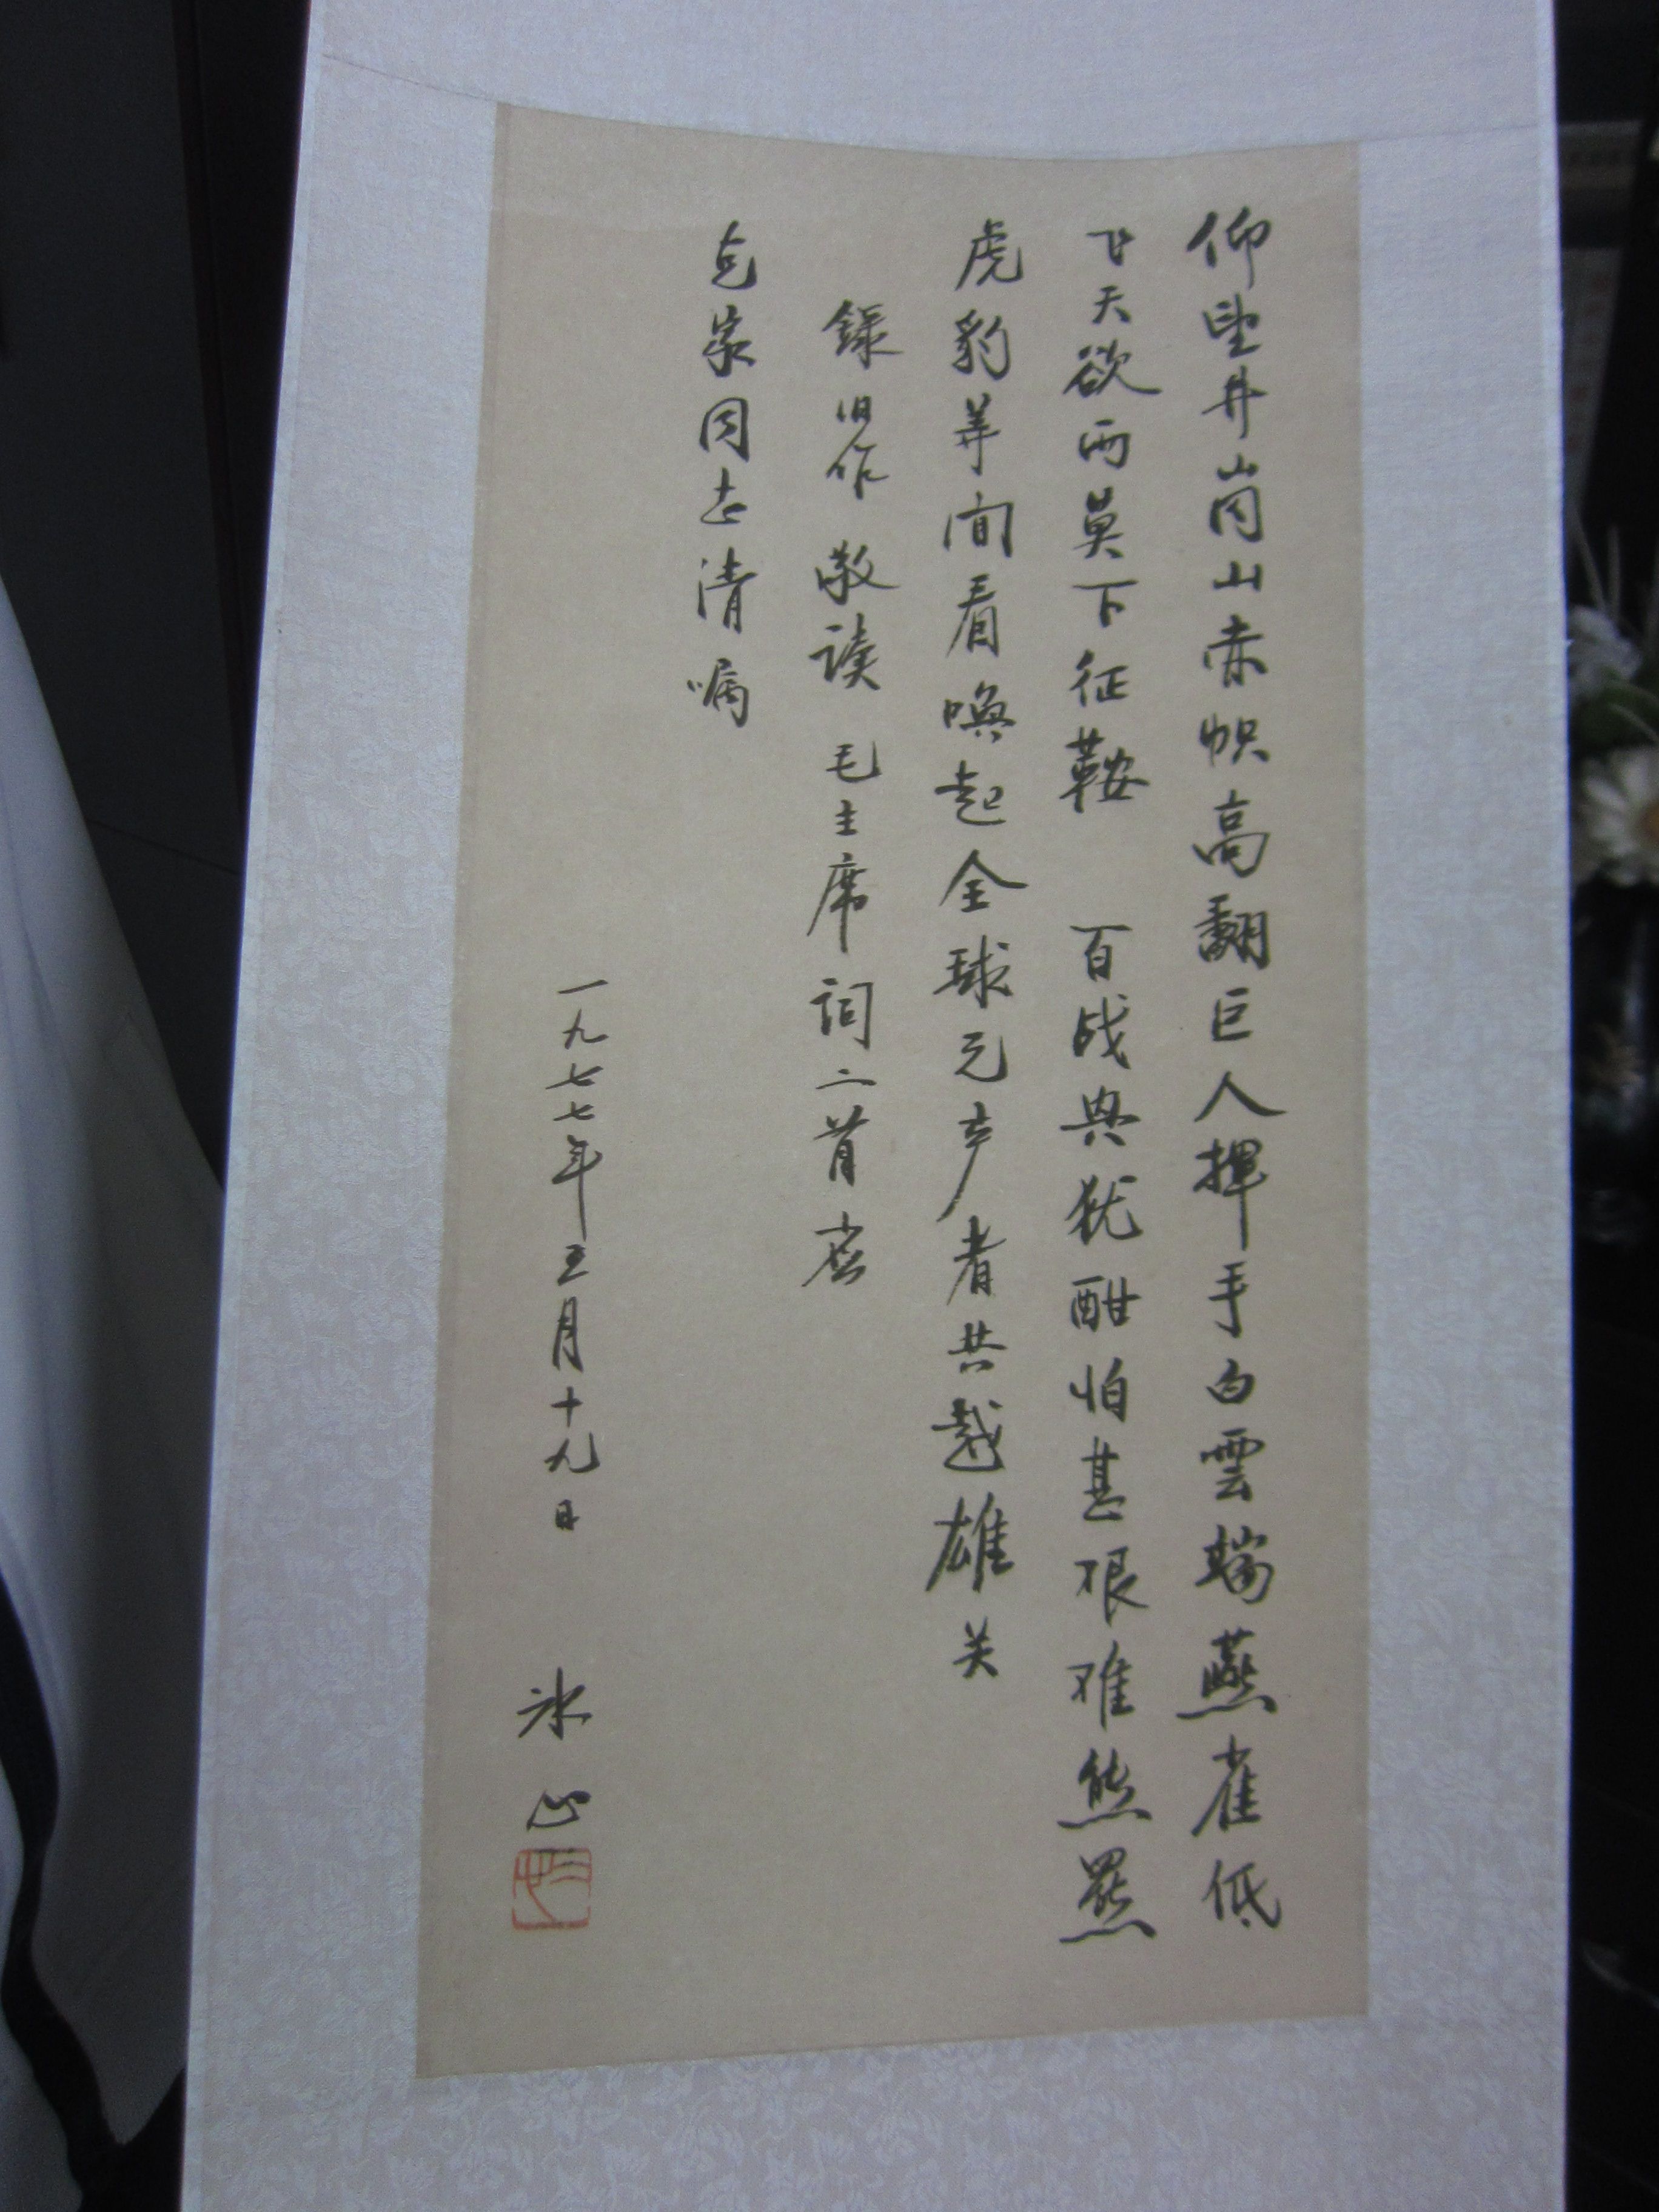 仰望井岗山赤帜高翻巨人挥手白雲端燕雀低
飞天欲雨莫下征鞍 百战兴犹酣怕甚艰难熊羆
虎豹等闲看唤起全球无产者共越雄关
錄旧作 敬读 毛主席词二首 应
克家同志清嘱
一九七七年五月十九日 冰心